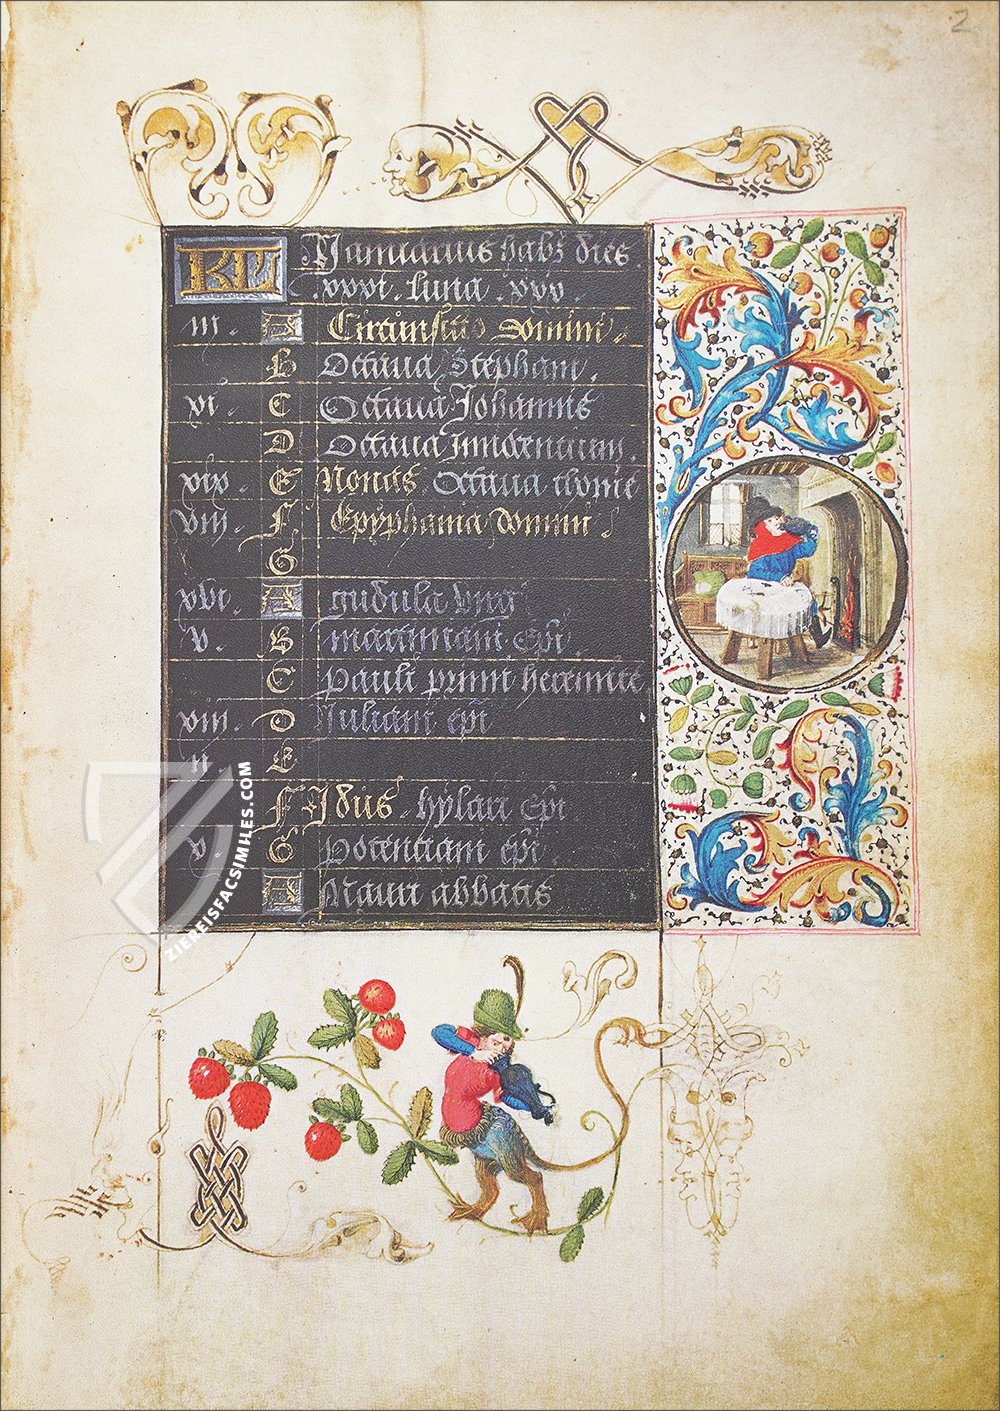 2
KL Januarius habz dies
.xxxi. luna .xxx.
iii. A Circunsitio domini.
B Octaua Stephani.
xi. C Octaua Johannis
D Octaua innocentium.
xix. E Nonas. Octaua thome
viii. F Epyphania domini
G
xvi. A gudula virg
v. B marciniani epi.
C Pauli primi heremite
xiii. D Juliani epi
ii. E
F Idus. hylari epi
x. G potentiani epi.
A Mauri abbatis
ZIEREISFACSIMILES.COM